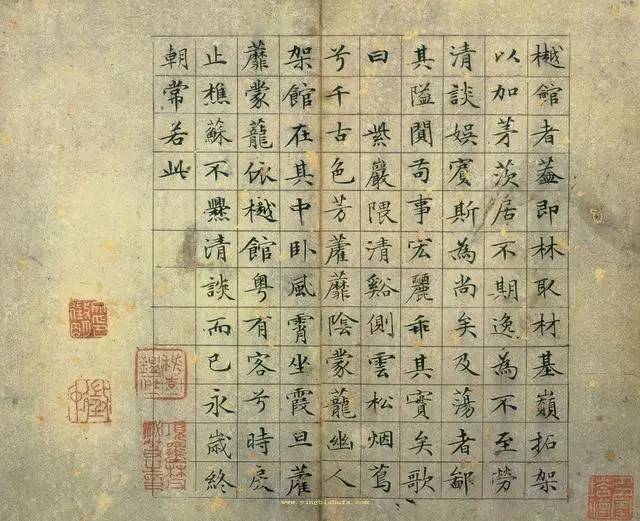 樾館者蓋即林取材基嶺拓架
以加茅茨居不期逸為不至勞
清談娛賓斯為尚矣及蕩者鄙
其隘閴苟事宏麗乖其實矣歌
曰 紫巖隈清谿側雲松烟蔦
兮千古色芳藿蘼陰蒙蘢幽人
架館在其中臥風霄坐霞旦藿
蘼蒙蘢依樾館粵有客兮時戾
止樵蘇不爨清談而已永歲終
朝常若此
www.yingbishufa.com